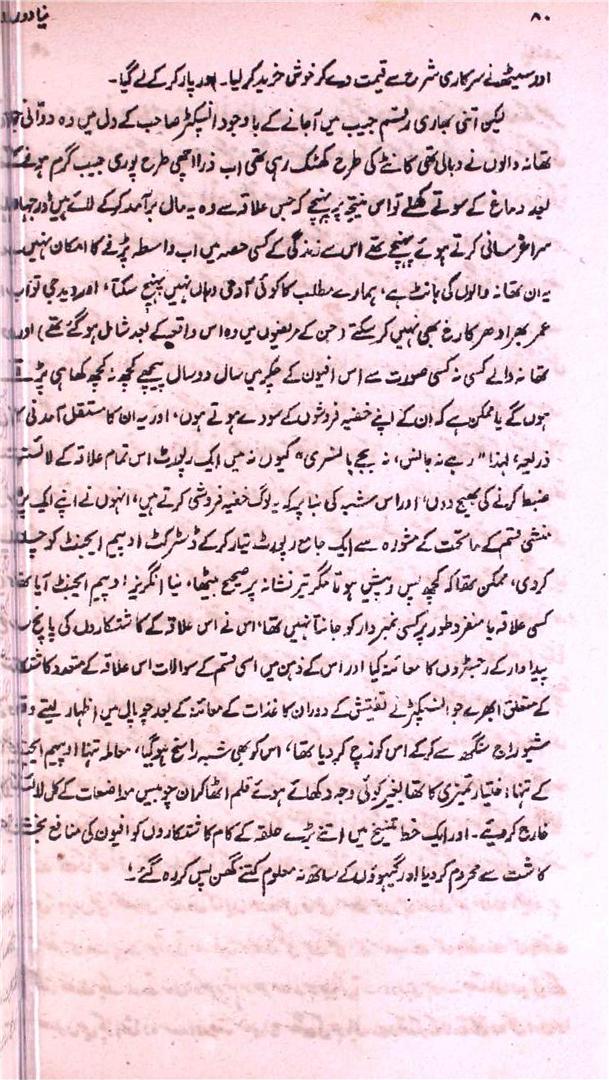 ۸۰ نیا دور
اور سیٹھ نے سرکاری شرح سے قیمت دے کر خوشی خرید کر لیا۔ اور پار کر کے لے گیا۔
لیکن اتنی بھاری رقم جیب میں آجانے کے باوجود انسپکٹر صاحب کے دل میں وہ دوّانی
تھانہ والوں نے دبالی تھی کانٹے کی طرح کھٹک رہی تھی اب ذرا اچھی طرح پوری جیب گرم ہونے کے
بعد دماغ کے سوتے کھلے تو اس نتیجے پر پہنچے کہ جس علاقہ سے وہ یہ مال برآمد کر کے لائے ہیں اور جہاں
سراغرسانی کرتے ہوئے پہنچے تھے اس سے زندگی کے کسی حصہ میں اب واسطہ پڑنے کا امکان نہیں
یہ ان تھانہ والوں کی بانٹ ہے، ہمارے مطلب کا کوئی آدمی وہاں نہیں پہنچ سکتا، اور دیدی تو اب
عمر بھر ادھر کا رخ بھی نہیں کر سکتے (جن کے مربعوں میں وہ اس واقعہ کے بعد شامل ہو گئے تھے) اور
تھانہ والے کسی نہ کسی صورت سے اس افیون کے چکر میں سال دو سال پیچھے کچھ نہ کچھ کھا ہی پڑتے
ہوں گے یا ممکن ہے کہ ان کے اپنے خفیہ فروشوں کے سودے ہوتے ہوں، اور یہ ان کا مستقل آمدنی کا
ذریعہ، لہٰذا "رہے نہ بانس، نہ بجے بانسری" کیوں نہ میں ایک رپورٹ اس تمام علاقہ کے لائسنس
ضبط کرنے کی بھیج دوں، اور اس شبہ کی بنا پر کہ یہ لوگ خفیہ فروشی کرتے ہیں، انہوں نے اپنے ایک
منشی قسم کے ماتحت کے مشورہ سے ایک جامع رپورٹ تیار کر کے ڈسٹرکٹ اوپیم ایجنٹ کو
کر دی، ممکن تھا کہ کچھ پس و پیش ہوتا مگر تیر نشانہ پر صحیح بیٹھا، نیا انگریز اوپیم ایجنٹ آیا تھا
کسی علاقہ یا منفرد طور پر کسی نمبردار کو جانتا نہیں تھا، اس نے اس علاقہ کے کاشتکاروں کی پانچ
پیداوار کے رجسٹروں کا معائنہ کیا اور اس کے ذہن میں اسی قسم کے سوالات اس علاقہ کے متعدد کاشتکاروں
کے متعلق ابھرے جو انسپکٹر نے تفتیش کے دوران کاغذات کے معائنہ کے بعد چوپال میں اظہار لیتے وقت
شیوراج سنگھ سے کر کے اس کو زچ کر دیا تھا، اس کو بھی شبہ راسخ ہو گیا، معاملہ تنہا اوپیم ایجنٹ
کے تنہا اختیار تمیزی کا تھا بغیر کوئی وجہ دکھائے ہوئے قلم اٹھا کر ان چوبیس مواضعات کے کل لائسنس
خارج کر دیے۔ اور ایک خط تنسیخ میں اتنے بڑے حلقہ کے کام کاشتکاروں کو افیون کی منافع بخش
کاشت سے محروم کر دیا اور گیہوؤں کے ساتھ نہ معلوم کتنے گھن پس کر رہ گئے!